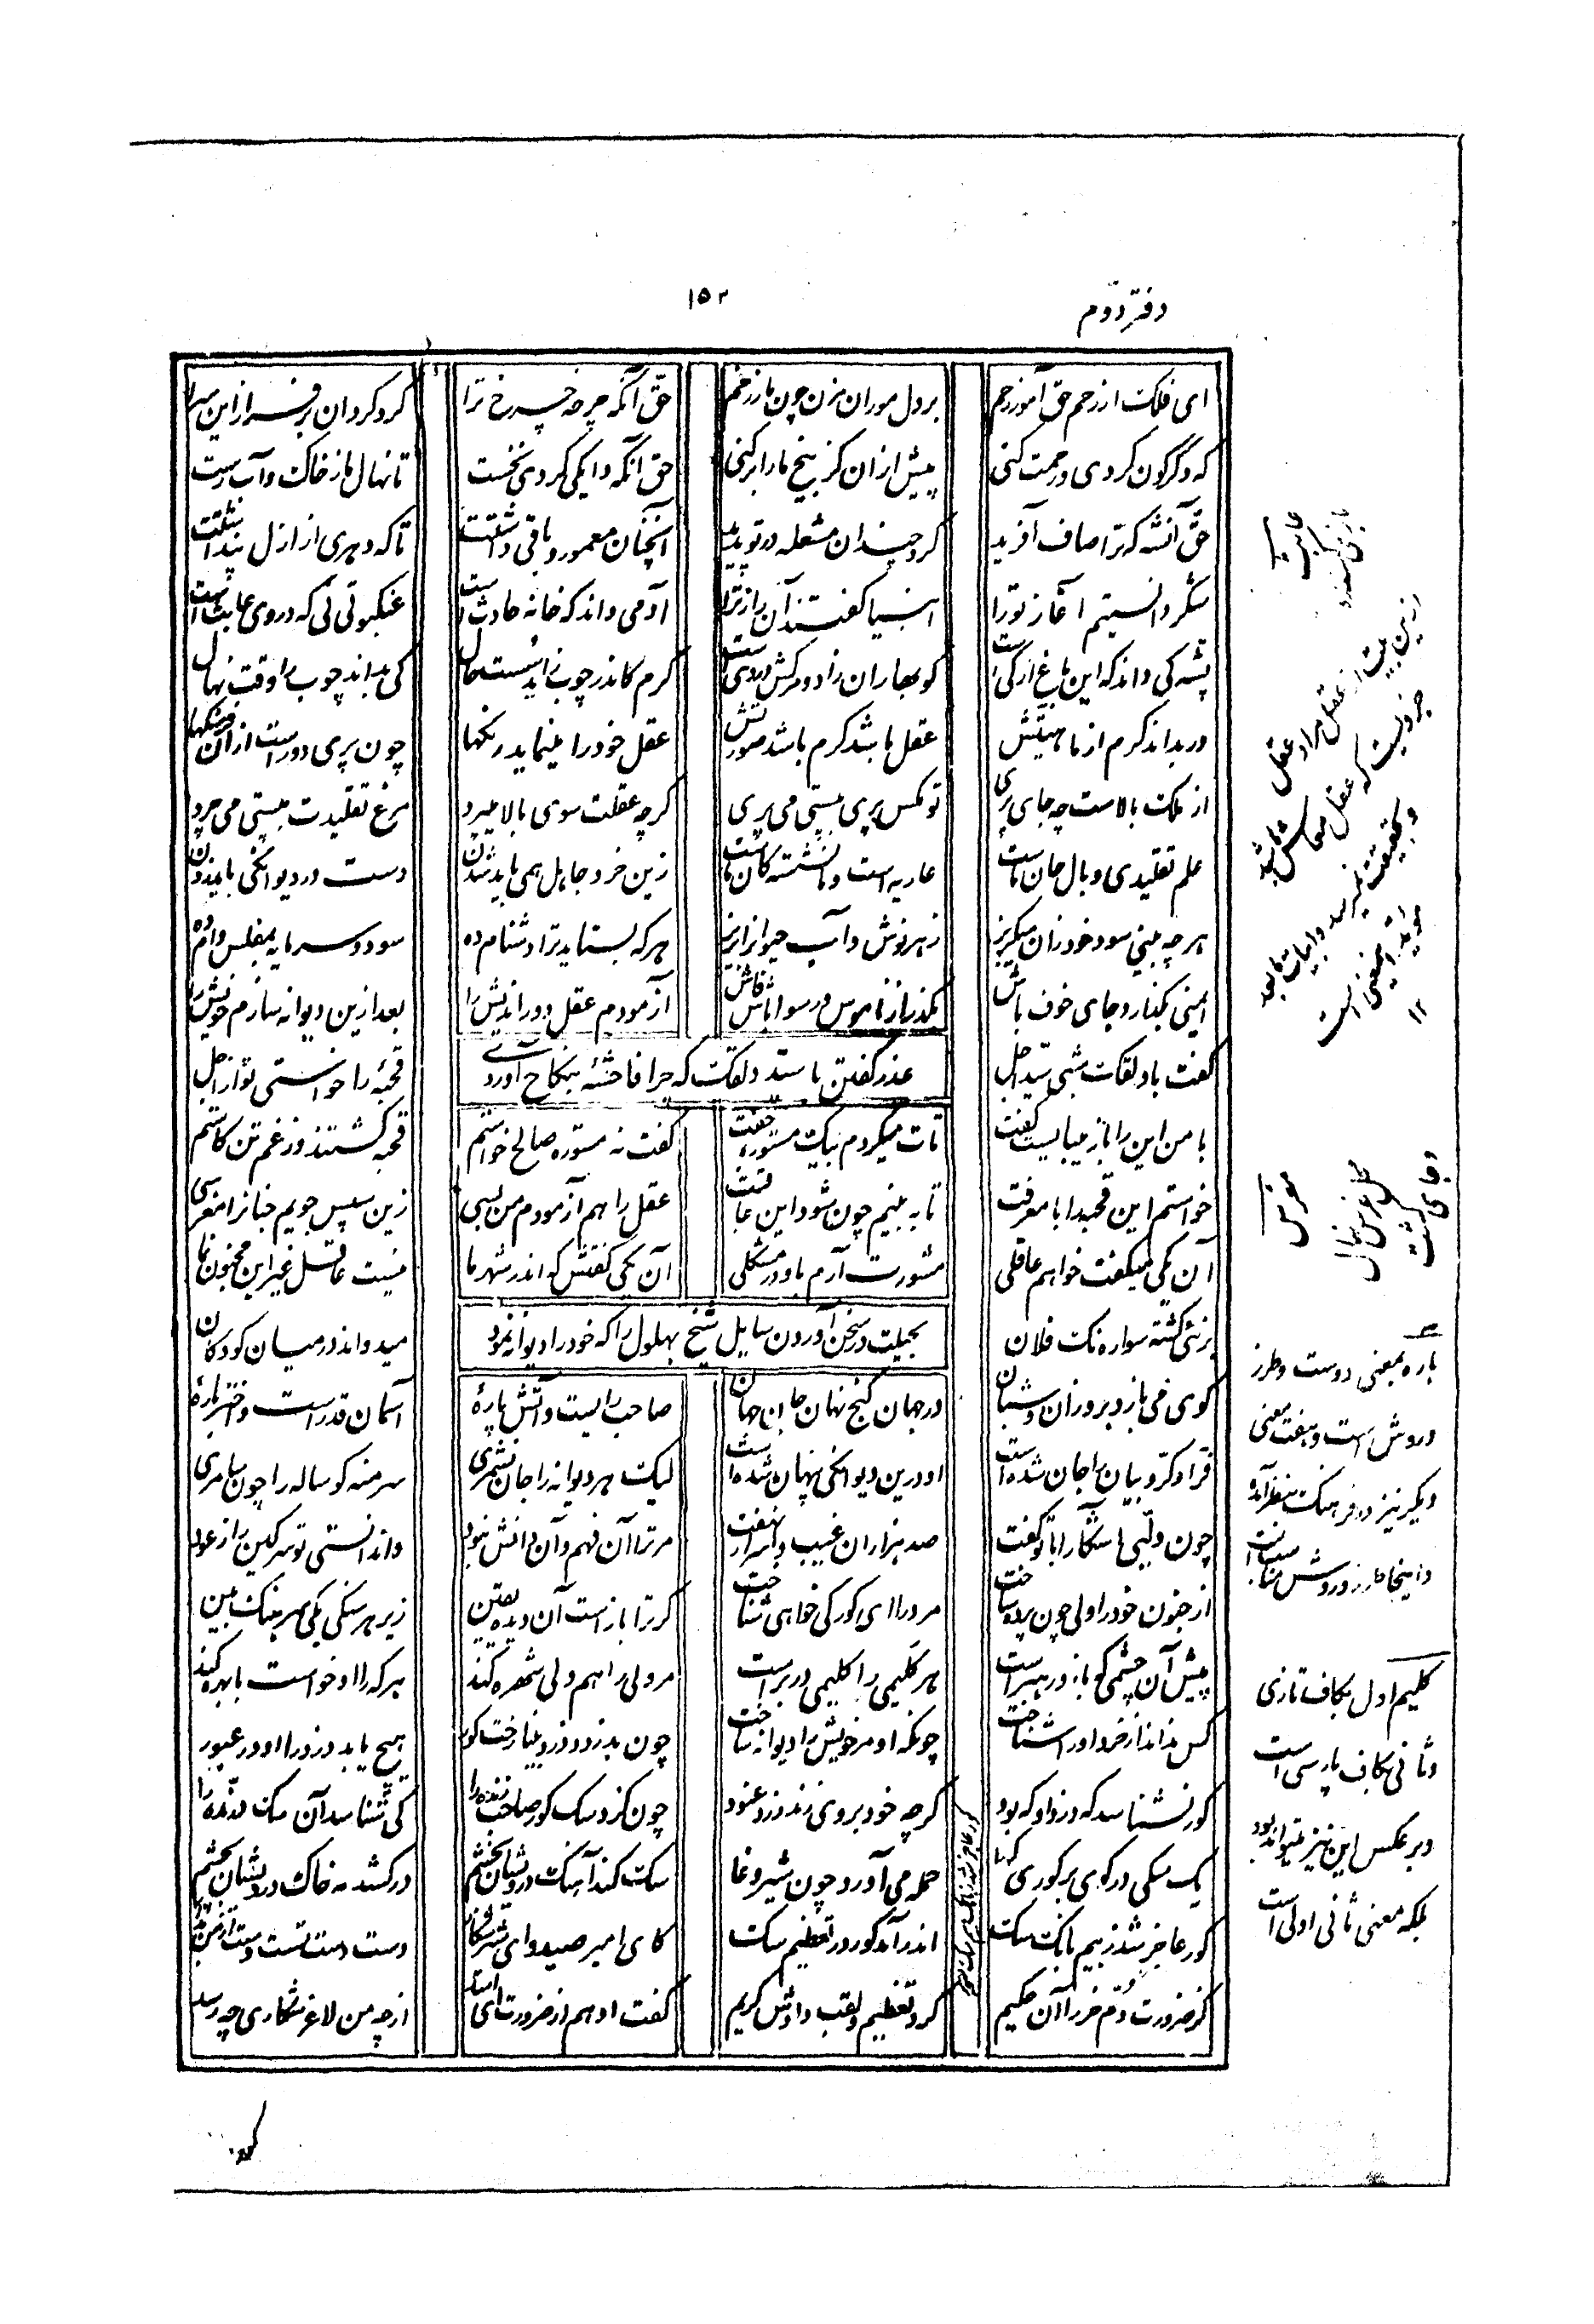 دفتر دوّم
۱۵۳
ای فلک از رحم حق آموز رحم بر دل موران مزن چون مار زخم حقّ آنکه چرخهٔ چرخ ترا کرد گردان بر فراز این سرا
که دگرگون گردی و رحمت کنی پیش ازان کز بیخ ما را بر کنی حق آنکه دایگی کردی نخست تا نهال ما ز خاک و آب رست
حقّ آن شه که ترا صاف آفرید کرد چندان مشعله در تو پدید آنچنان معمور و باقی داشتت تا که دهری از ازل پنداشتت
شکر دانستیم آغاز تو را انبیا گفتند آن راز ترا آدمی داند که خانه حادث است عنکبوتی نی که در وی عابث است
پشه کی داند که این باغ از کی است کو بهاران زاد و مرگش در دی است کرم کاندر چوب زائیدست حال کی بداند چوب را وقت نهال
ور بداند کرم از ماهیتش عقل باشد کرم باشد صورتش عقل خود را مینماید رنگها چون پری دور است ازان فرسنگها
از ملک بالاست چه جای پری تو مگس پری بپستی می پری گرچه عقلت سوی بالا میپرد مرغ تقلیدت بپستی می چرد
علم تقلیدی وبال جان ماست عاریه است و ما نشسته کان ماست زین خرد جاهل همی باید شدن دست در دیوانگی باید زدن
هر چه بینی سود خود زان میگریز زهر نوش و آب حیوان را بریز هر که بستاید ترا دشنام ده سود و سرمایه بمفلس وام ده
ایمنی بگذار و جای خوف باش بگذر از ناموس و رسوا باش فاش آزمودم عقل دوراندیش را بعد ازین دیوانه سازم خویش را
عذر گفتن با سید دلقک که چرا فاحشه بنکاح آوردی
گفت با دلقک شبی سید اجل قحبهٔ را خواستی تو از عجل
با من این را باز میبایست گفت تات میکردم بیک مستوره جفت گفت نه مستوره صالح خواستم قحبه گشتند و ز غم تن کاستم
خواستم این قحبه را با معرفت تا به بینم چون شود این عاقبت عقل را هم آزمودم من بسی زین سپس جویم جنان را مغرسی
بحیلت در سخن آوردن سایل شیخ بهلول را که خود را دیوانه نمود
آن یکی میگفت خواهم عاقلی مشورت آرم باو در مشکلی آن یکی گفتش که اندر شهر ما نیست عاقل غیر این مجنون نما
بر نئی گشته سواره نک فلان میدواند در میان کودکان
گوی می بازد بروزان و شبان در جهان گنج نهان جان جهان صاحب رایست و آتش پارهٔ آسمان قدر است و اختر بارهٔ
فرّ او کرّوبیان را جان شده است او درین دیوانگی پنهان شده است لیک هر دیوانه را جان نشمری سر منه گوساله را چون سامری
چون ولیّی آشکارا با تو گفت صد هزاران غیب و اسرار نهفت مر ترا آن فهم و آن دانش نبود وا ندانستی تو سرگین را ز عود
از جنون خود را ولی چون پرده ساخت مر ورا ای کور کی خواهی شناخت گر ترا باز است آن دیدهٔ یقین زیر هر سنگی یکی سرهنگ بین
پیش آن چشمی که باز و رهبر است هر کلیمی را گلیمی در بر است مر ولی را هم ولی شهره کند هر که را او خواست با بهره کند
کس نداند از خرد او را شناخت چونکه او مر خویش را دیوانه ساخت چون بدزدد دزد بینا رخت کور هیچ یابد دزد را او در عبور
کور نشناسد که دزد او که بود گرچه خود بر وی زند دزد عنود چون گزد سگ کور صاحب ژنده را کی شناسد آن سگ درنده را
یک سگی در کوی بر کوری گدا حمله می آورد چون شیر وغا سگ کند آهنگ درویشان بخشم در کشد مه خاک درویشان بچشم
کور عاجز شد ز بیم بانگ سگ اندر آمد کور در تعظیم سگ کای امیر صید و ای شیر شکار دست دست تست دست از من بدار
کز ضرورت دمّ خر را آن حکیم کرد تعظیم و لقب دادش کریم گفت او هم از ضرورت ای اسد از چو من لاغر شکاری چه رسد
عابث
بازی کننده
ازین بیت از عقل مراد عقل
جزویست که عقل معاش باشد
و بحقیقت نمیرسد و ابیات ما بعد
مؤید این معنی است
۱۲
مغرس
محل غرس نهال
و جای کشت
باره بمعنی دوست و طرز
و روش است و هفت معنی
دیگر نیز در فرهنگ بنظر آمد
و اینجا طرز و روش مناسب است
کلیم اول بکاف تازی
و ثانی بکاف پارسی است
و بر عکس این نیز میتواند بود
بلکه معنی ثانی اولی است